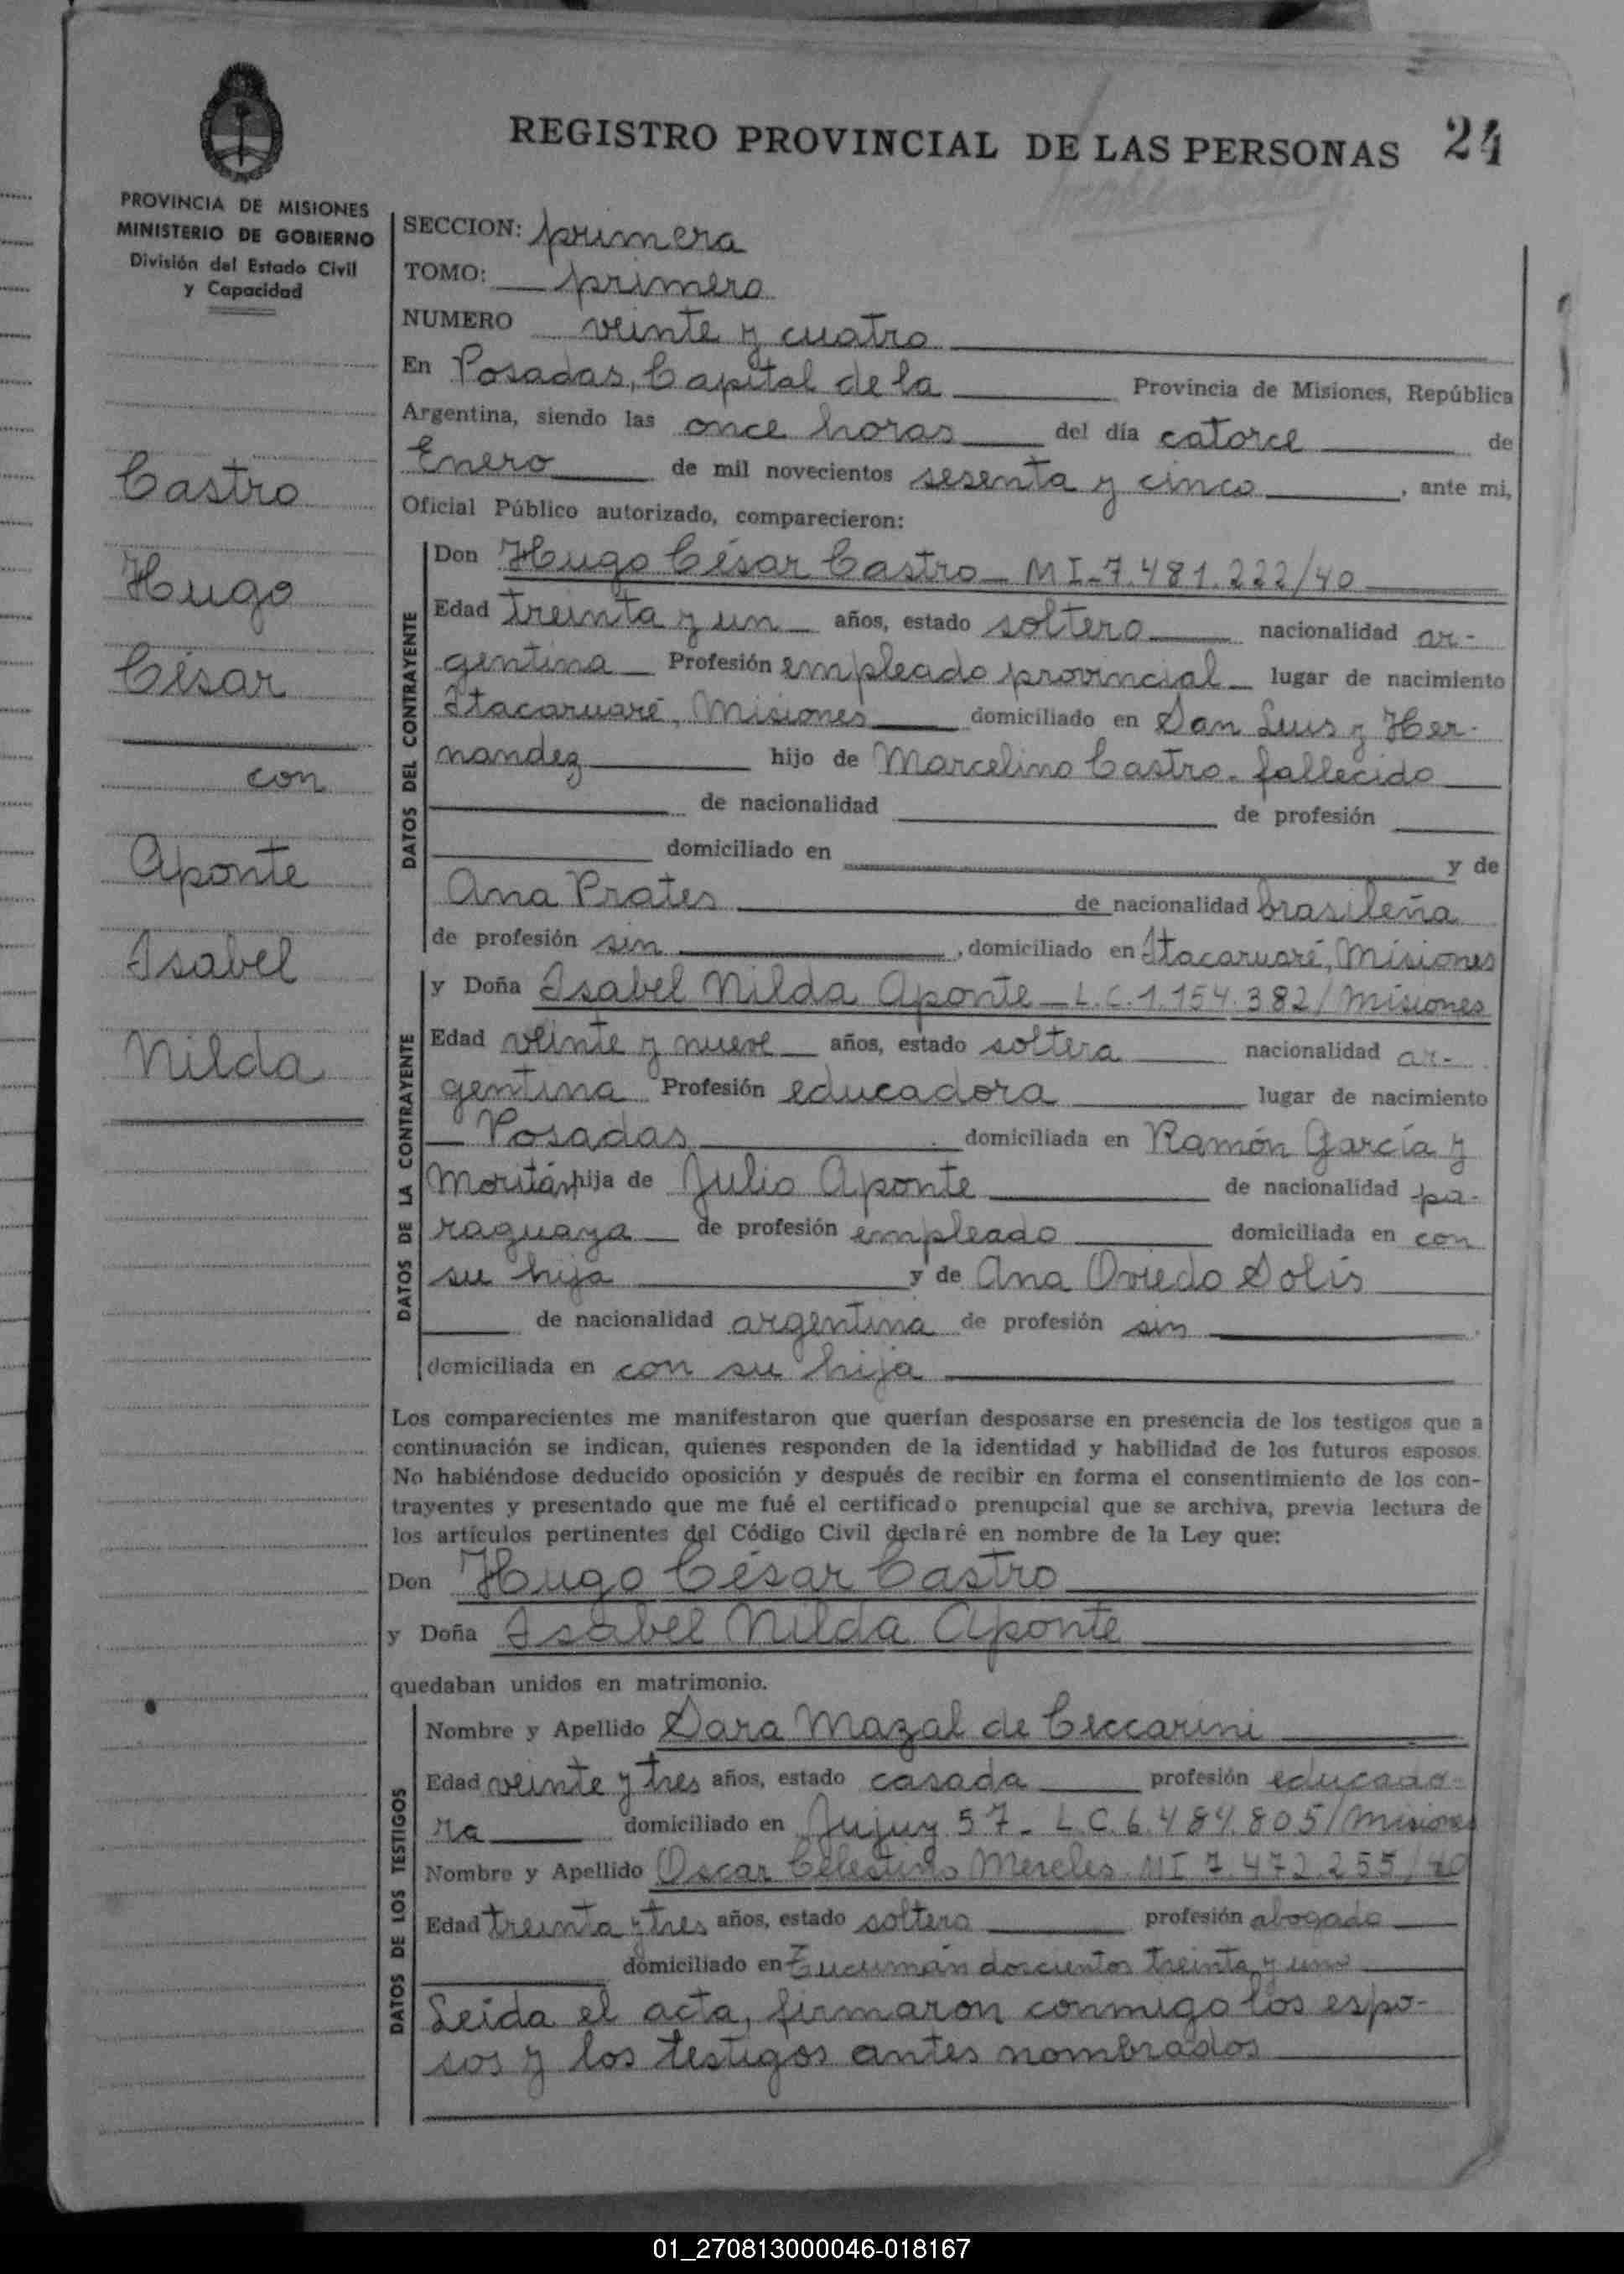 REGISTRO PROVINCIAL DE LAS PERSONAS 24
PROVINCIA DE MISIONES
MINISTERIO DE GOBIERNO
División del Estado Civil
y Capacidad
Castro
Hugo
César
con
Aponte
Isabel
Nilda
SECCION: primera
TOMO: primero
NUMERO veinte y cuatro
En Posadas, Capital de la Provincia de Misiones, República
Argentina, siendo las once horas del día catorce de
Enero de mil novecientos sesenta y cinco, ante mi,
Oficial Público autorizado, comparecieron:
DATOS DEL CONTRAYENTE
Don Hugo César Castro - MI-7.481.222/40
Edad treinta y un años, estado soltero nacionalidad ar-
gentina Profesión empleado provincial lugar de nacimiento
Itacaruaré, Misiones domiciliado en San Luis y Her-
nandez hijo de Marcelino Castro - fallecido
de nacionalidad de profesión
domiciliado en y de
Ana Prates de nacionalidad brasileña
de profesión sin, domiciliado en Itacaruaré, Misiones
DATOS DE LA CONTRAYENTE
y Doña Isabel Nilda Aponte - L.C. 1.154.382/Misiones
Edad veinte y nueve años, estado soltera nacionalidad ar-
gentina Profesión educadora lugar de nacimiento
Posadas domiciliada en Ramón García y
hija de Julio Aponte de nacionalidad pa-
raguaya de profesión empleado domiciliada en con
su hija y de Ana Oviedo Solís
de nacionalidad argentina de profesión sin
domiciliada en con su hija
Los comparecientes me manifestaron que querían desposarse en presencia de los testigos que a
continuación se indican, quienes responden de la identidad y habilidad de los futuros esposos.
No habiéndose deducido oposición y después de recibir en forma el consentimiento de los con-
trayentes y presentado que me fué el certificado prenupcial que se archiva, previa lectura de
los artículos pertinentes del Código Civil declaré en nombre de la Ley que:
Don Hugo César Castro
y Doña Isabel Nilda Aponte
quedaban unidos en matrimonio.
DATOS DE LOS TESTIGOS
Nombre y Apellido Sara Mazal de Ceccarini
Edad veinte y tres años, estado casada profesión educado-
ra domiciliado en Jujuy 57 - L.C. 6.484.805/Misiones
Nombre y Apellido Oscar Celestino Mereles MI 7.472.255/40
Edad treinta y tres años, estado soltero profesión abogado
domiciliado en Tucumán doscientos treinta y uno
Leida el acta, firmaron conmigo los espo-
sos y los testigos antes nombrados
01_270813000046-018167